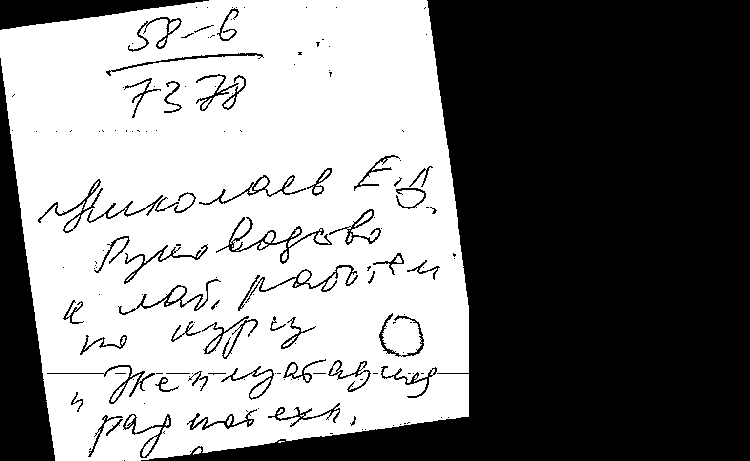 58-6
7378
Николаев Е.Д.
Руководство
к лаб. работам
по курсу
"Эксплуатация
радиотехн.